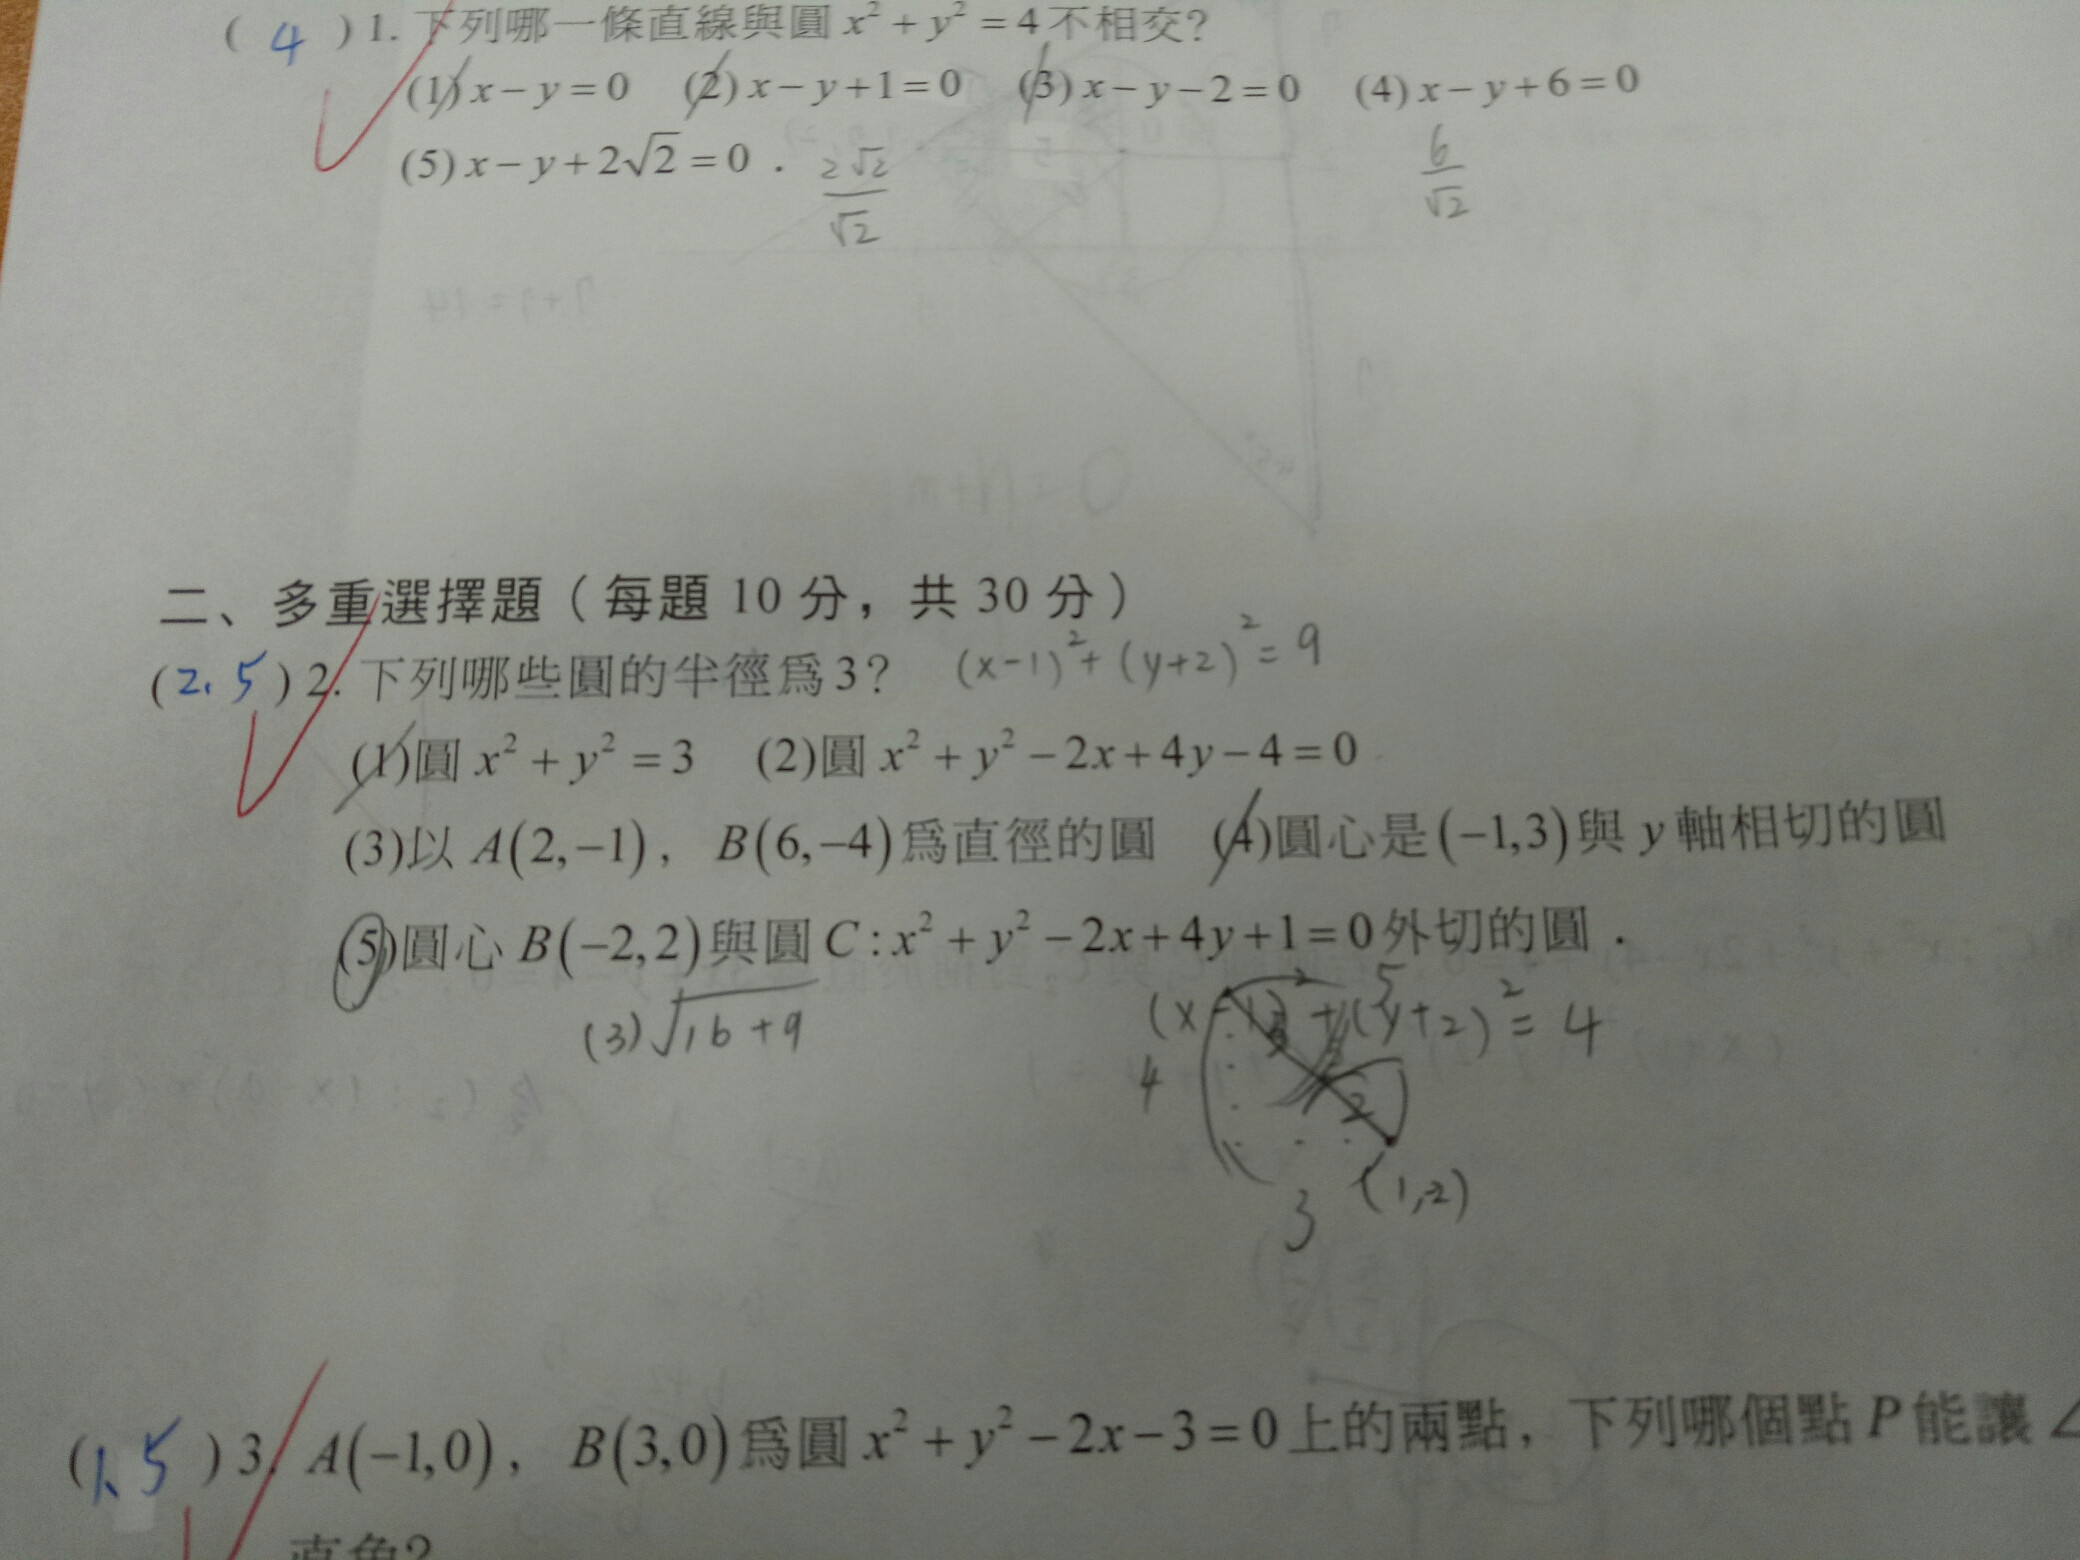 ( 4 ) 1. 下列哪一條直線與圓 x² + y² = 4 不相交?
(1) x − y = 0 (2) x − y + 1 = 0 (3) x − y − 2 = 0 (4) x − y + 6 = 0
(5) x − y + 2√2 = 0 . 2√2/√2 6/√2
二、多重選擇題（每題 10 分，共 30 分）
( 2、5 ) 2. 下列哪些圓的半徑爲 3? (x-1)² + (y+2)² = 9
(1)圓 x² + y² = 3 (2)圓 x² + y² − 2x + 4y − 4 = 0
(3)以 A(2,−1), B(6,−4) 爲直徑的圓 (4)圓心是 (−1,3) 與 y 軸相切的圓
(5)圓心 B(−2,2) 與圓 C : x² + y² − 2x + 4y + 1 = 0 外切的圓 .
(3) √16+9 (x-1)² + (y+2)² = 4
5
4
2
3 (1,-2)
( 1、5 ) 3. A(−1,0), B(3,0) 爲圓 x² + y² − 2x − 3 = 0 上的兩點, 下列哪個點 P 能讓 ∠
直角?